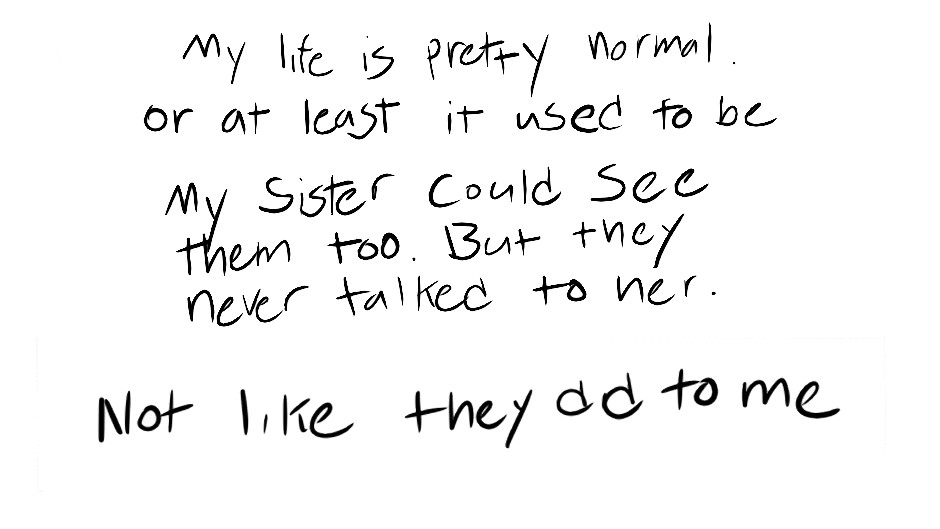 My life is pretty normal.
or at least it used to be
My Sister Could See
them too. But they
never talked to her.
Not like they dd to me